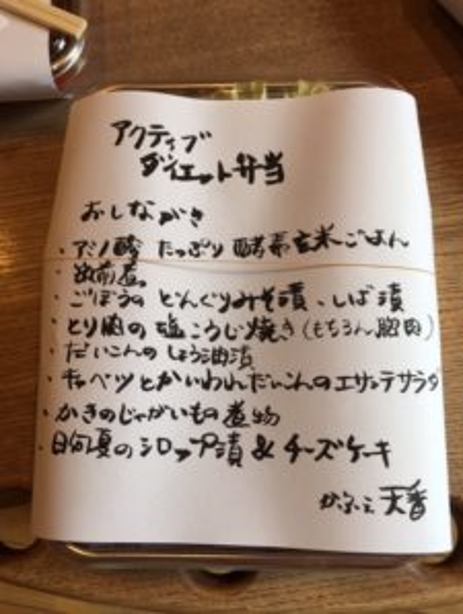 アクティブ
ダイエット弁当
おしながき
・アミノ酸 たっぷり 酵素玄米ごはん
・筑前煮。
・ごぼうの どんぐりみそ漬、しば漬
・とり肉の 塩こうじ焼き(もちろん胸肉)
・だいこんの しょう油漬
・キャベツとかいわれだいこんのエサンテサラダ
・かきのじゃがいもの煮物
・日向夏のシロップ漬 & チーズケーキ
かふぇ 天香